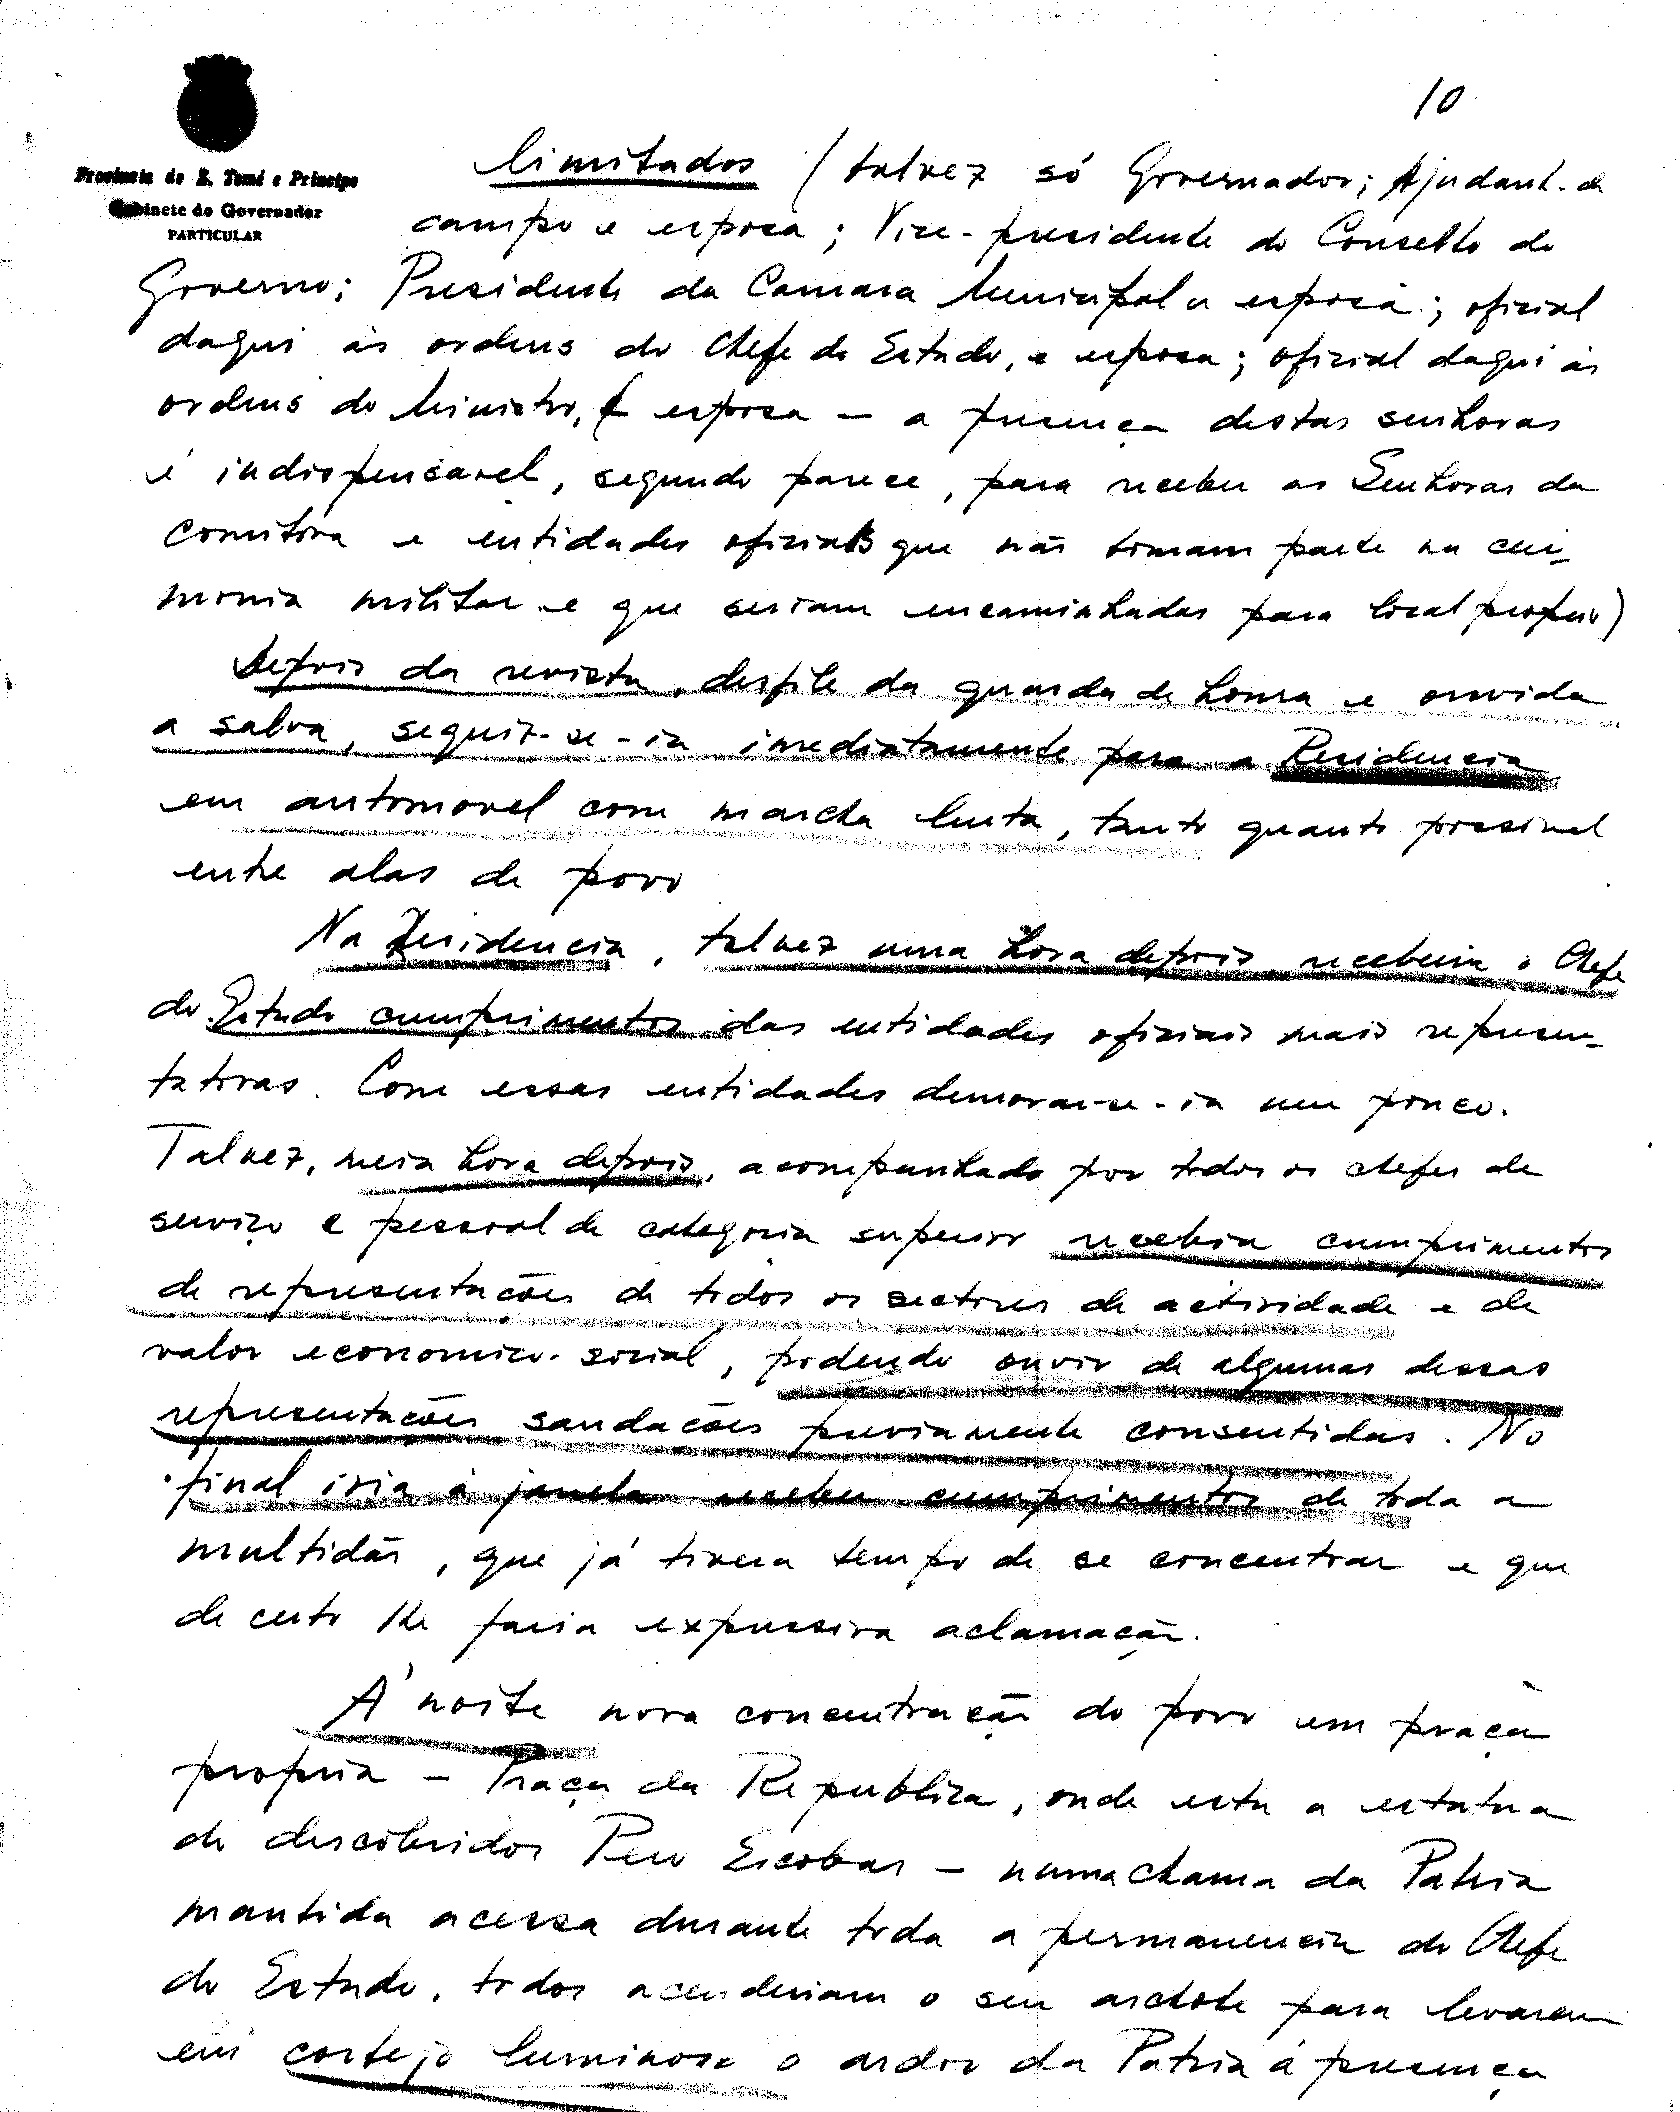 10
Provincia de S. Tomé e Principe
Gabinete do Governador
PARTICULAR
limitados (talvez só Governador; Ajudant. de
campo e esposa; Vice-presidente do Conselho do
Governo; Presidente da Camara Municipal e esposa; oficial
daqui às ordens do Chefe do Estado, e esposa; oficial daqui às
ordens do Ministro, e esposa — a presença destas senhoras
é indispensavel, segundo parece, para receber as Senhoras da
comitiva e entidades oficiais que não tomam parte na ceri-
monia militar e que seriam encaminhadas para local proprio)
Depois da revista, desfile da guarda de honra e ouvida
a salva, seguir-se-ia imediatamente para a Residencia
em automovel com marcha lenta, tanto quanto possivel
entre alas de povo
Na Residencia, talvez uma hora depois receberia o Chefe
do Estado cumprimentos das entidades oficiais mais represen-
tativas. Com essas entidades demorar-se-ia um pouco.
Talvez, meia hora depois, acompanhado por todos os chefes de
serviço e pessoal de categoria superior receberia cumprimentos
de representações de todos os sectores de actividade e de
valor economico-social, podendo ouvir de algumas dessas
representações saudações previamente consentidas. No
final iria à janela receber cumprimentos de toda a
multidão, que já tivera tempo de se concentrar e que
de certo lhe faria expressiva aclamação.
À noite nova concentração do povo em praça
propria — Praça da Republica, onde esta a estatua
do descobridor Pero Escobar — numa chama da Patria
mantida acessa durante toda a permanencia do Chefe
do Estado, todos acenderiam o seu archote para levarem
em cortejo luminoso o ardor da Patria à presença